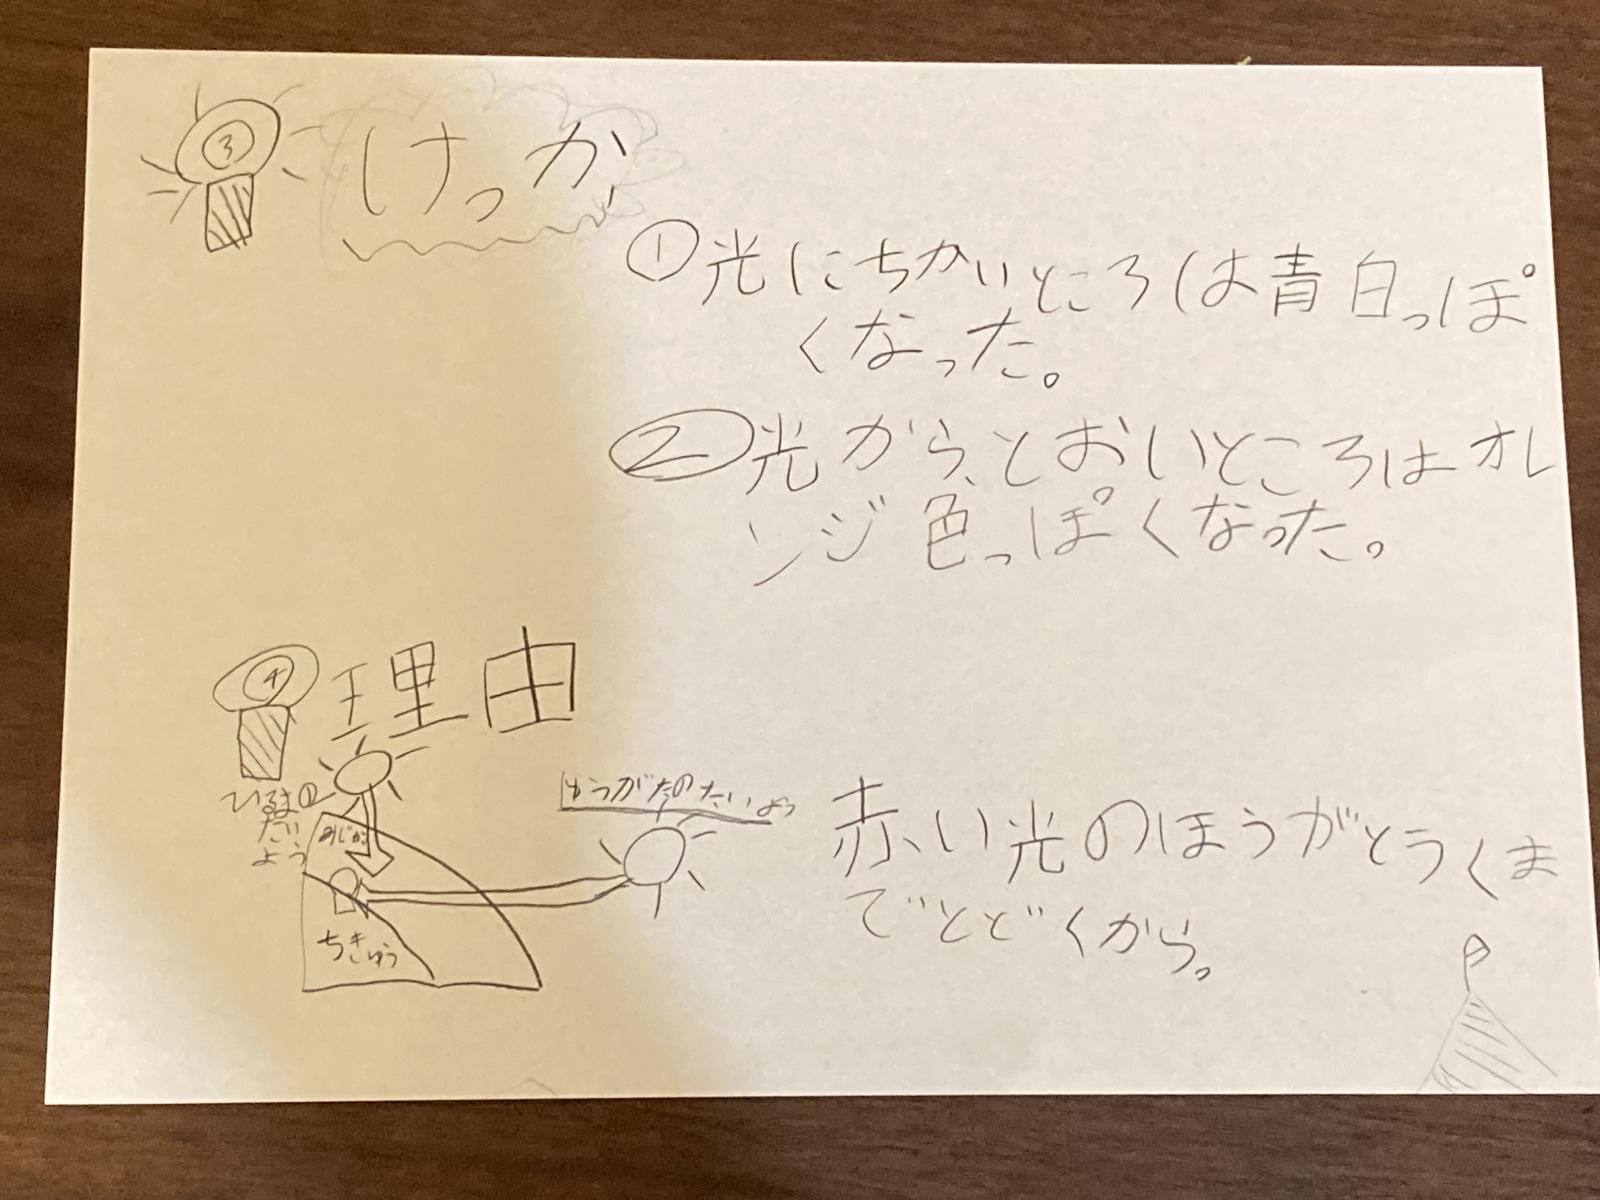 ③ けっか
①光にちかいところは青白っぽ
くなった。
②光から、とおいところはオレ
ンジ色っぽくなった。
④ 理由
ひるまの
たい
よう
ゆうがたのたいよう
ちきゅう
赤い光のほうがとうくま
でとどくから。